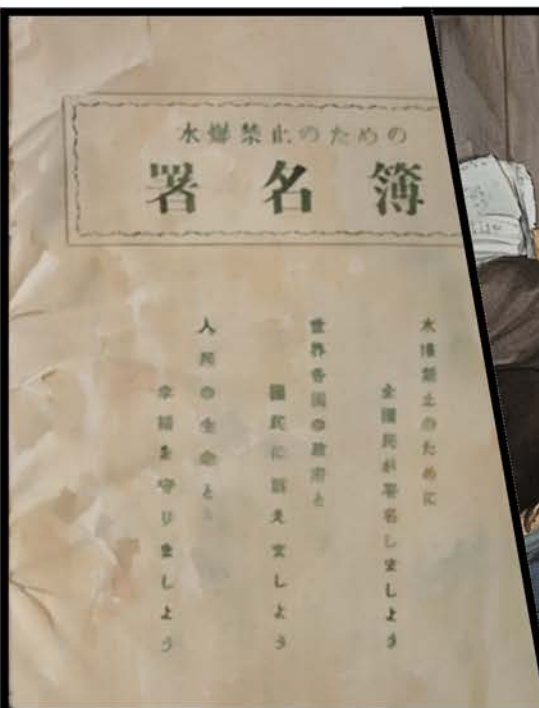 水爆禁止のための
署名簿
水爆禁止のために
全國民が署名しましよう
世界各国の政府と
國民に訴えましよう
人類の生命と
幸福を守りましよう